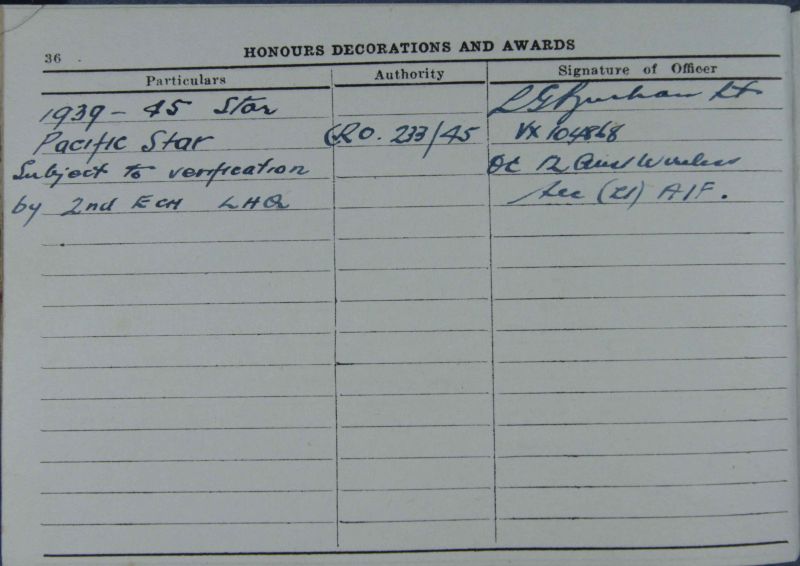 36
HONOURS DECORATIONS AND AWARDS
Particulars Authority Signature of Officer
1939 - 45 Star
Pacific Star GRO. 233/45 VX 104868
Subject to verification OC 12 Aust Wireless
by 2nd ECH LHQ Sec (LI) AIF.